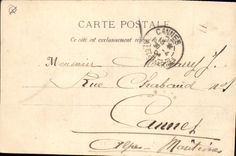 CARTE POSTALE
Ce côté est exclusivement réservé
CANNES
Monsieur
Rue Chabaud
Cannes
Alpes Maritimes